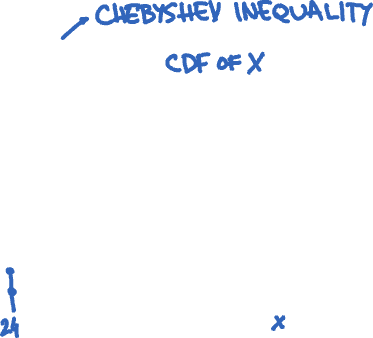 CHEBYSHEV INEQUALITY
CDF OF X
24
x